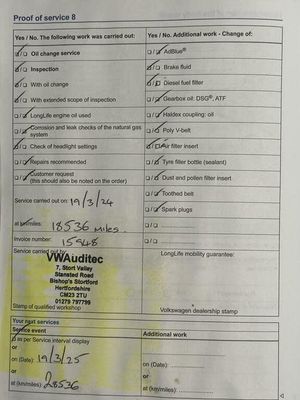 Proof of service 8
Yes / No. The following work was carried out:
Oil change service
Inspection
With oil change
With extended scope of inspection
LongLife engine oil used
Corrosion and leak checks of the natural gas
system
Check of headlight settings
Repairs recommended
Customer request
(this should also be noted on the order)
Service carried out on: 19/3/24
at km/miles: 18536 MILES.
Invoice number: 15948
Service carried out by:
VWAuditec
7, Stort Valley
Stansted Road
Bishop's Stortford
Hertfordshire
CM23 2TU
01279 797799
Stamp of qualified workshop
Yes / No. Additional work - Change of:
AdBlue®
Brake fluid
Diesel fuel filter
Gearbox oil: DSG®, ATF
Haldex coupling: oil
Poly V-belt
Air filter insert
Tyre filler bottle (sealant)
Dust and pollen filter insert
Toothed belt
Spark plugs
LongLife mobility guarantee:
Volkswagen dealership stamp
Your next services
Service event
as per Service interval display
or
on (Date): 19/3/25
or
at (km/miles): 28536
Additional work
on (Date):
or
at (km/miles):